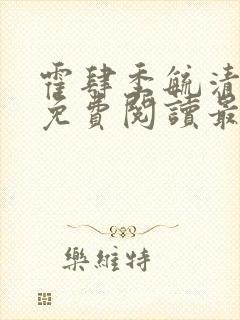 霍肆季毓清
免費閱讀最
樂維特